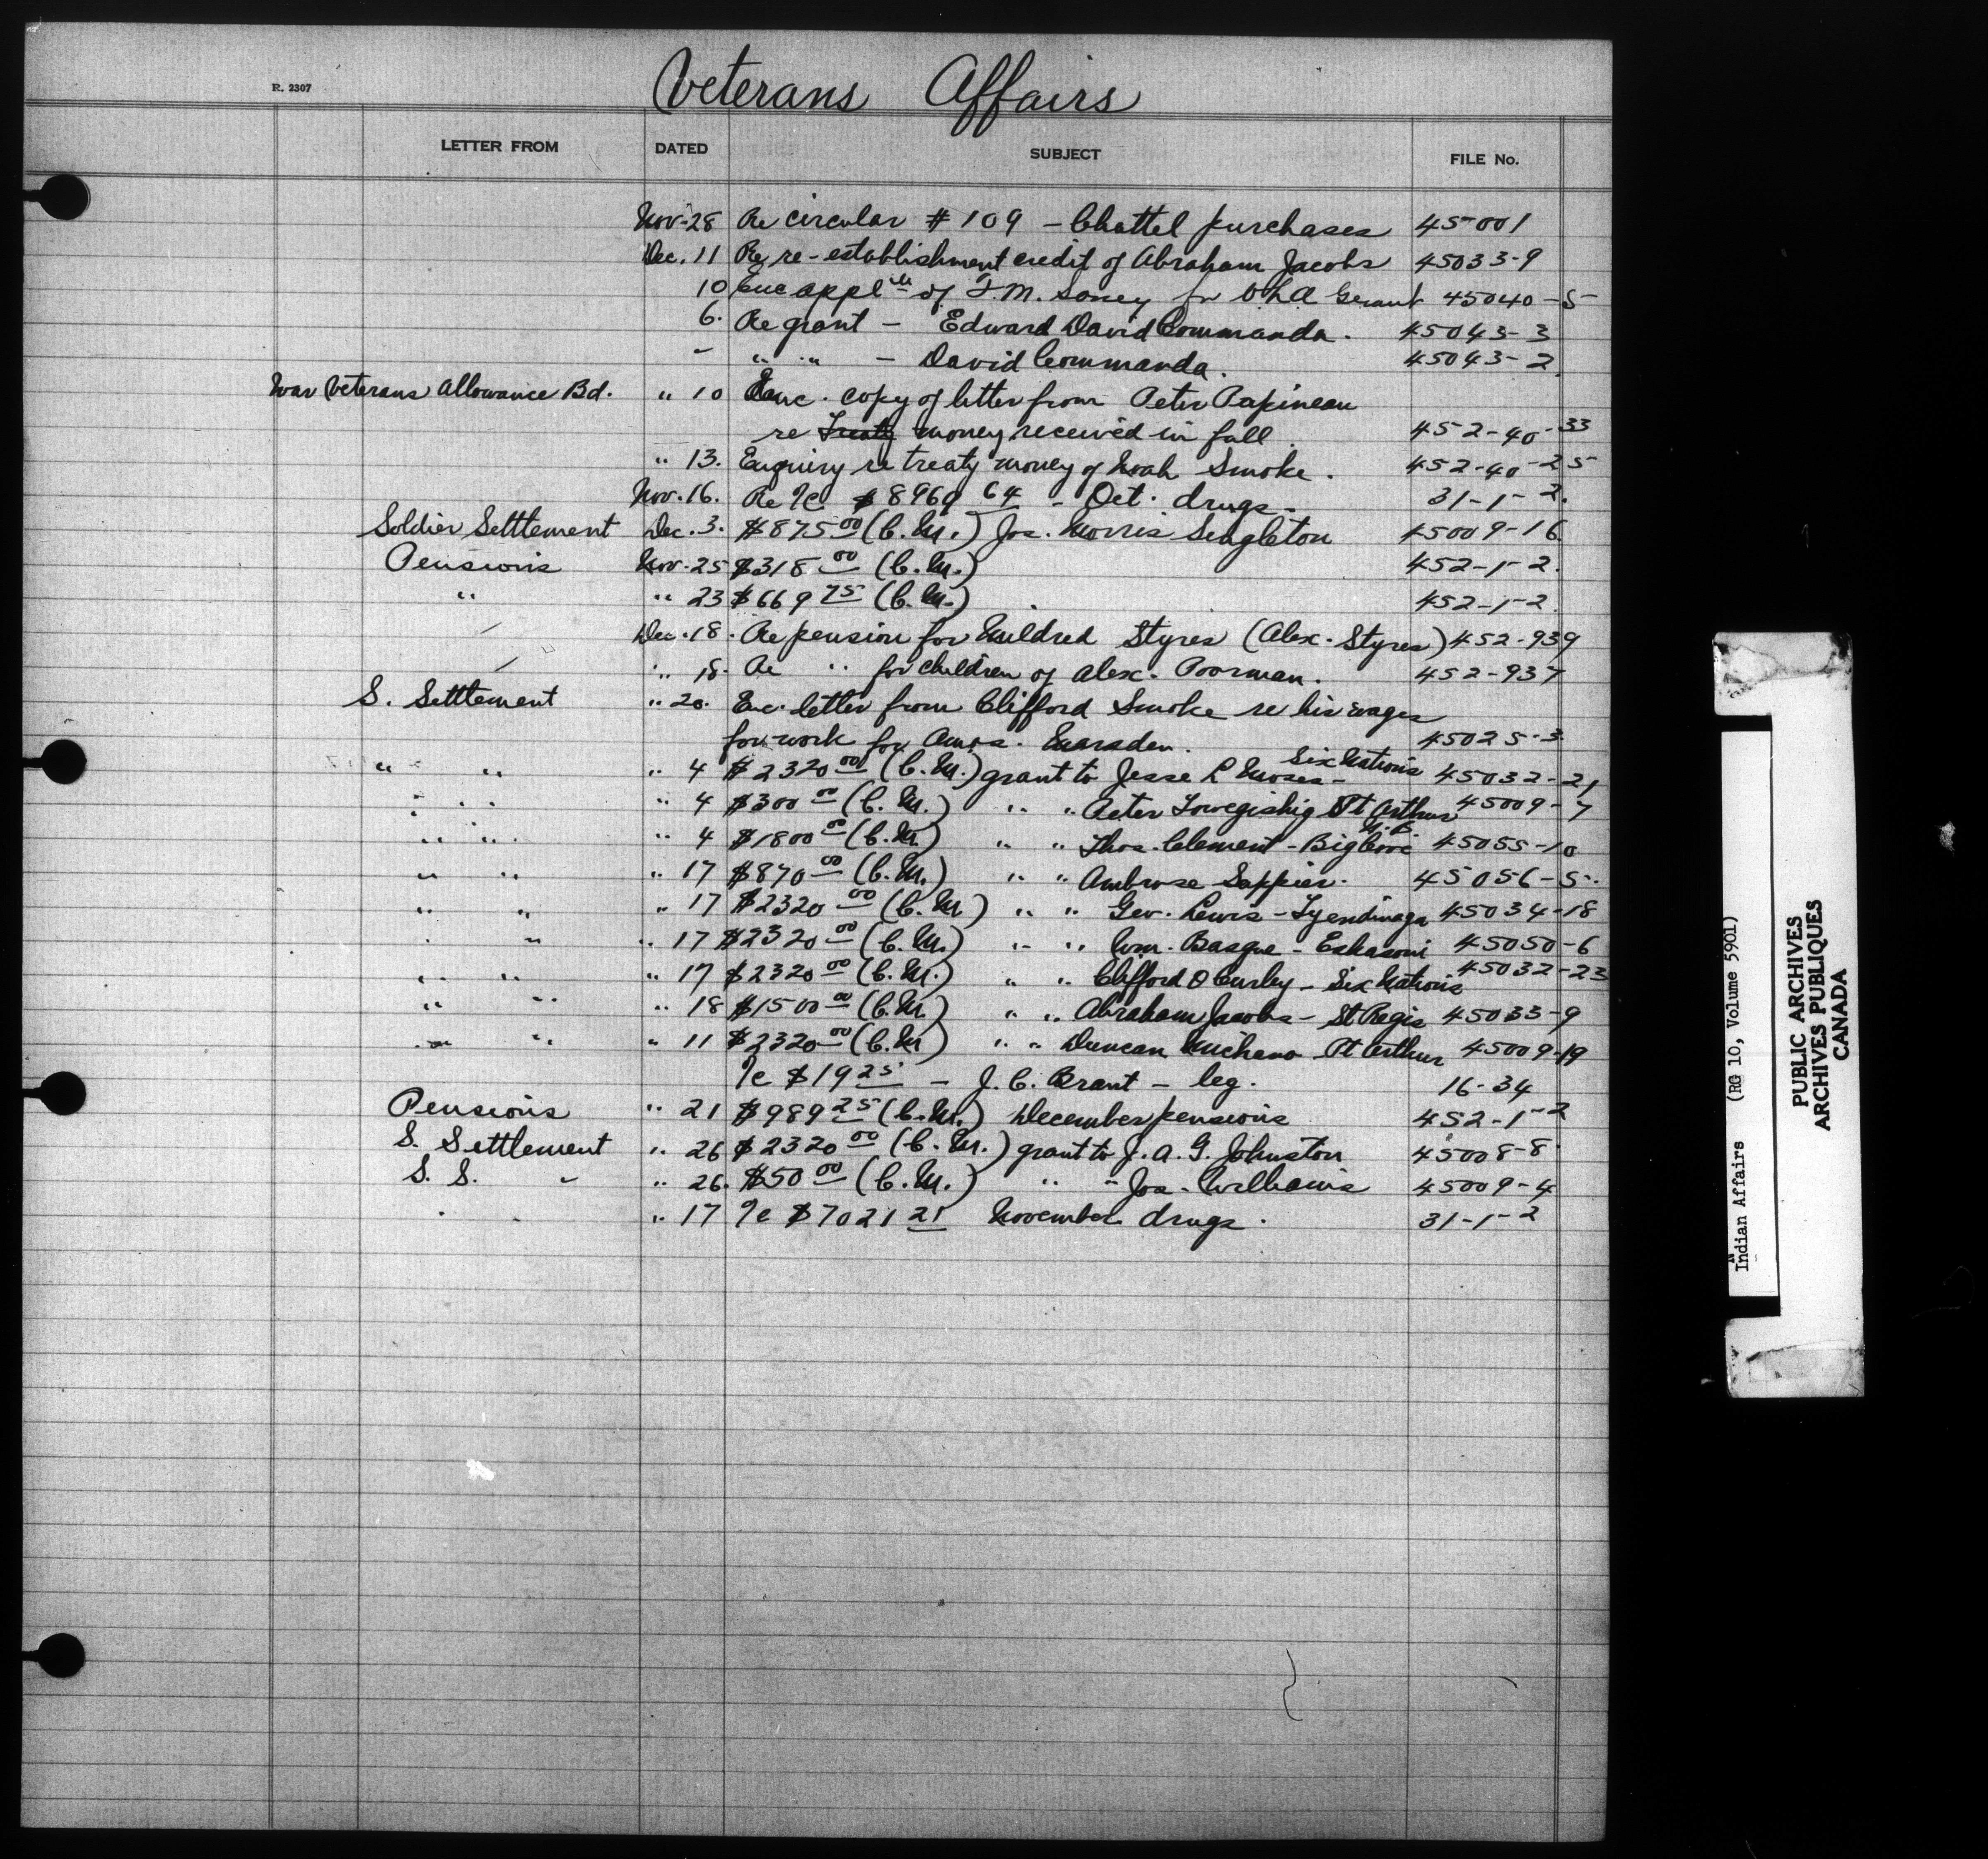 R. 2307
Veterans Affairs
LETTER FROM DATED SUBJECT FILE No.
Nov. 28 Re circular # 109 - Chattel purchases 45001
Dec. 11 Re re-establishment credit of Abraham Jacobs 45033-9
10 Enc appl of F.M. Soney for VLA Grant 45040-5
6. Re grant - Edward David Commanda. 45043-3
" " " - David Commanda. 45043-2
War Veterans Allowance Bd. " 10 Enc. copy of letter from Peter Papineau
re Treaty money received in fall. 452-40-33
" 13. Enquiry re treaty money of Noah Smoke. 452-40-25
Nov. 16. Re %c $8969 64 - Oct. drugs - 31-1-2.
Soldier Settlement Dec. 3. $875 00 (C.M.) Jos. Morris Singleton 45009-16
Pensions Nov. 25 $318 00 (C.M.) 452-1-2.
" " 23 $669 75 (C.M.) 452-1-2.
Dec. 18. Re pension for Mildred Styres (Alex. Styres) 452-939
" 18. Re " for children of Alex. Poorman. 452-937
S. Settlement " 20. Enc. letter from Clifford Smoke re his wages
for work for Amos. Marsden. 45025-3
" " " 4 $2320 00 (C.M.) grant to Jesse L Moses - Six Nations 45032-21
" " " 4 $300 00 (C.M.) " " Peter Towegishig Pt Arthur 45009-7
" " " 4 $1800 00 (C.M.) " " Thos. Clement - Big Cove N.B. 45055-10
" " " 17 $870 00 (C.M.) " " Ambrose Sappier. 45056-5.
" " " 17 $2320 00 (C.M.) " " Geo. Lewis - Tyendinaga 45034-18
" " " 17 $2320 00 (C.M.) " " Wm. Basque - Eskasoni 45050-6
" " " 17 $2320 00 (C.M.) " " Clifford O Curley - Six Nations 45032-23
" " " 18 $1500 00 (C.M.) " " Abraham Jacobs - St Regis 45033-9
" " " 11 $2320 00 (C.M.) " " Duncan Michano - Pt Arthur 45009-19
%c $19 25 - J.C. Brant - leg. 16-34
Pensions " 21 $989 25 (C.M.) December pensions 452-1-2
S. Settlement " 26 $2320 00 (C.M.) grant to J.A.G. Johnston 45008-8
S. S. " 26. $50 00 (C.M.) " " Jos. Williams 45009-4
" 17 %c $7021 21 November drugs. 31-1-2
Indian Affairs (RG 10, Volume 5901)
PUBLIC ARCHIVES
ARCHIVES PUBLIQUES
CANADA